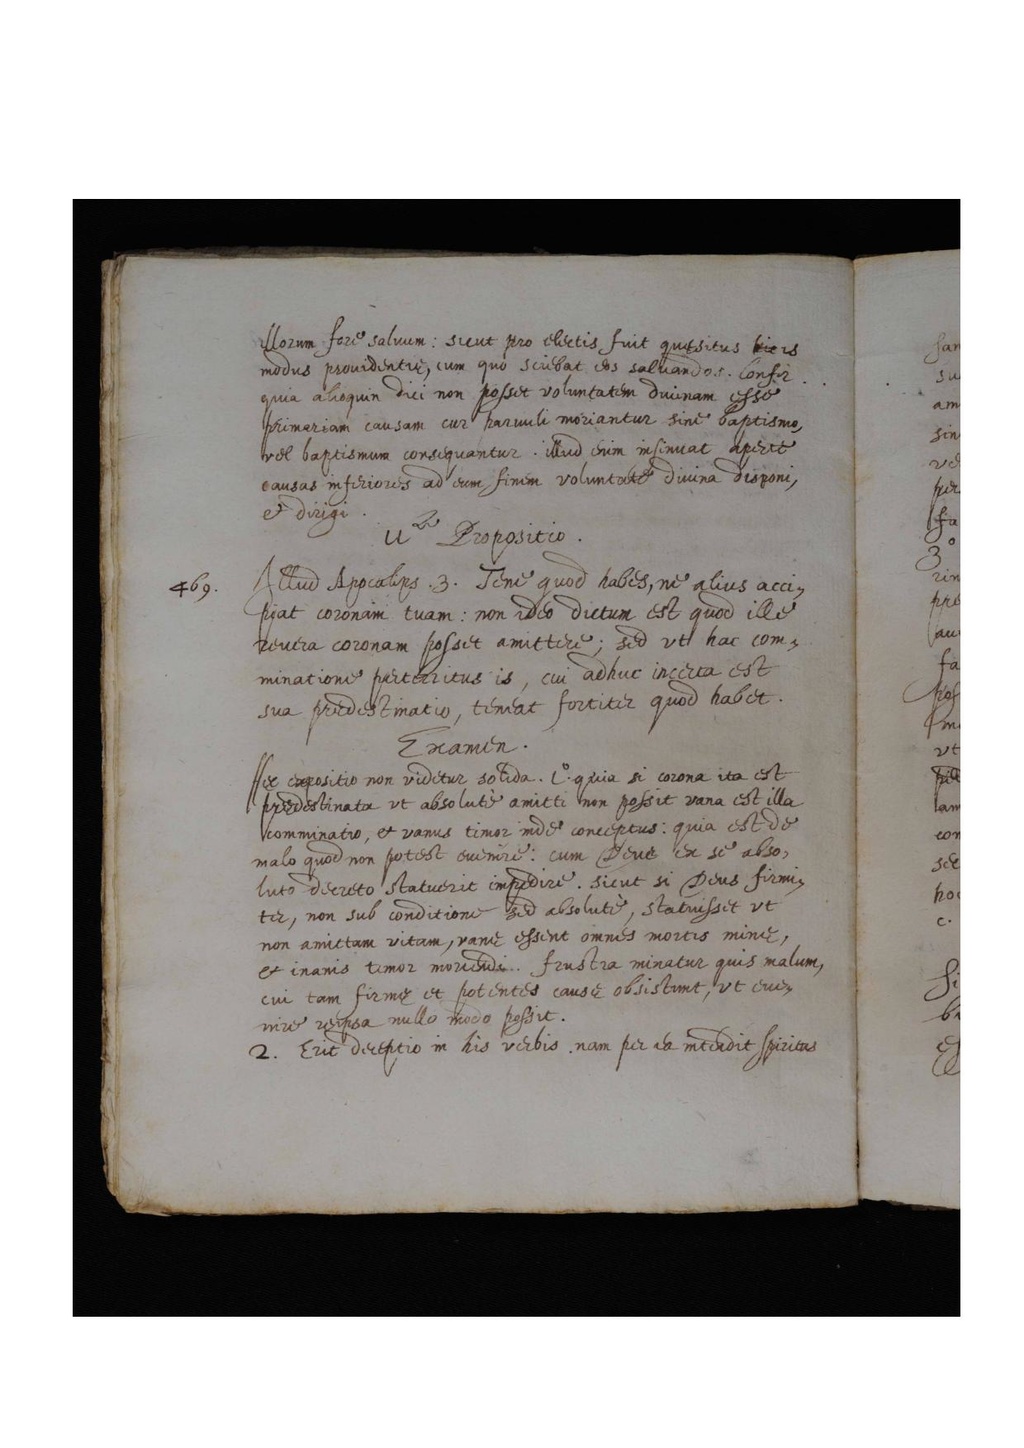 illorum fore saluum: sicut pro electis fuit quęsitus
modus prouidentię, cum quo sciebat eos saluandos. Confir.
quia alioquin dici non posset voluntatem diuinam esse
primariam causam cur paruuli moriantur sine baptismo,
vel baptismum consequantur. illud enim insinuat apertè
causas inferiores ad eum finem voluntate diuina disponi,
et dirigi.
11.ª Propositio.
469. Illud Apocalips. 3. Tene quod habes, ne alius acci-
piat coronam tuam: non ideo dictum est quod ille
reuera coronam posset amittere; sed vt hac com-
minatione perterritus is, cui adhuc incerta est
sua prædestinatio, teneat fortiter quod habet.
Examen.
Hęc expositio non videtur solida. 1.º quia si corona ita est
prædestinata vt absolutè amitti non possit vana est illa
comminatio, et vanus timor inde conceptus: quia est de
malo quod non potest euenire: cum Deus ex se abso-
luto decreto statuerit impedire. sicut si Deus firmi-
ter, non sub conditione sed absolutè, statuisset vt
non amittam vitam, vanę essent omnes mortis minę,
et inanis timor moriendi. frustra minatur quis malum,
cui tam firmę et potentes causę obsistunt, vt eue-
nire reipsa nullo modo possit.
2. Erit deceptio in his verbis. nam per ea intendit spiritus
san
su
am
sin
ve
per
fa
3.º
rin
pre
au
fa
pos
vt
am
con
sec
hoc
c.
Si
ba